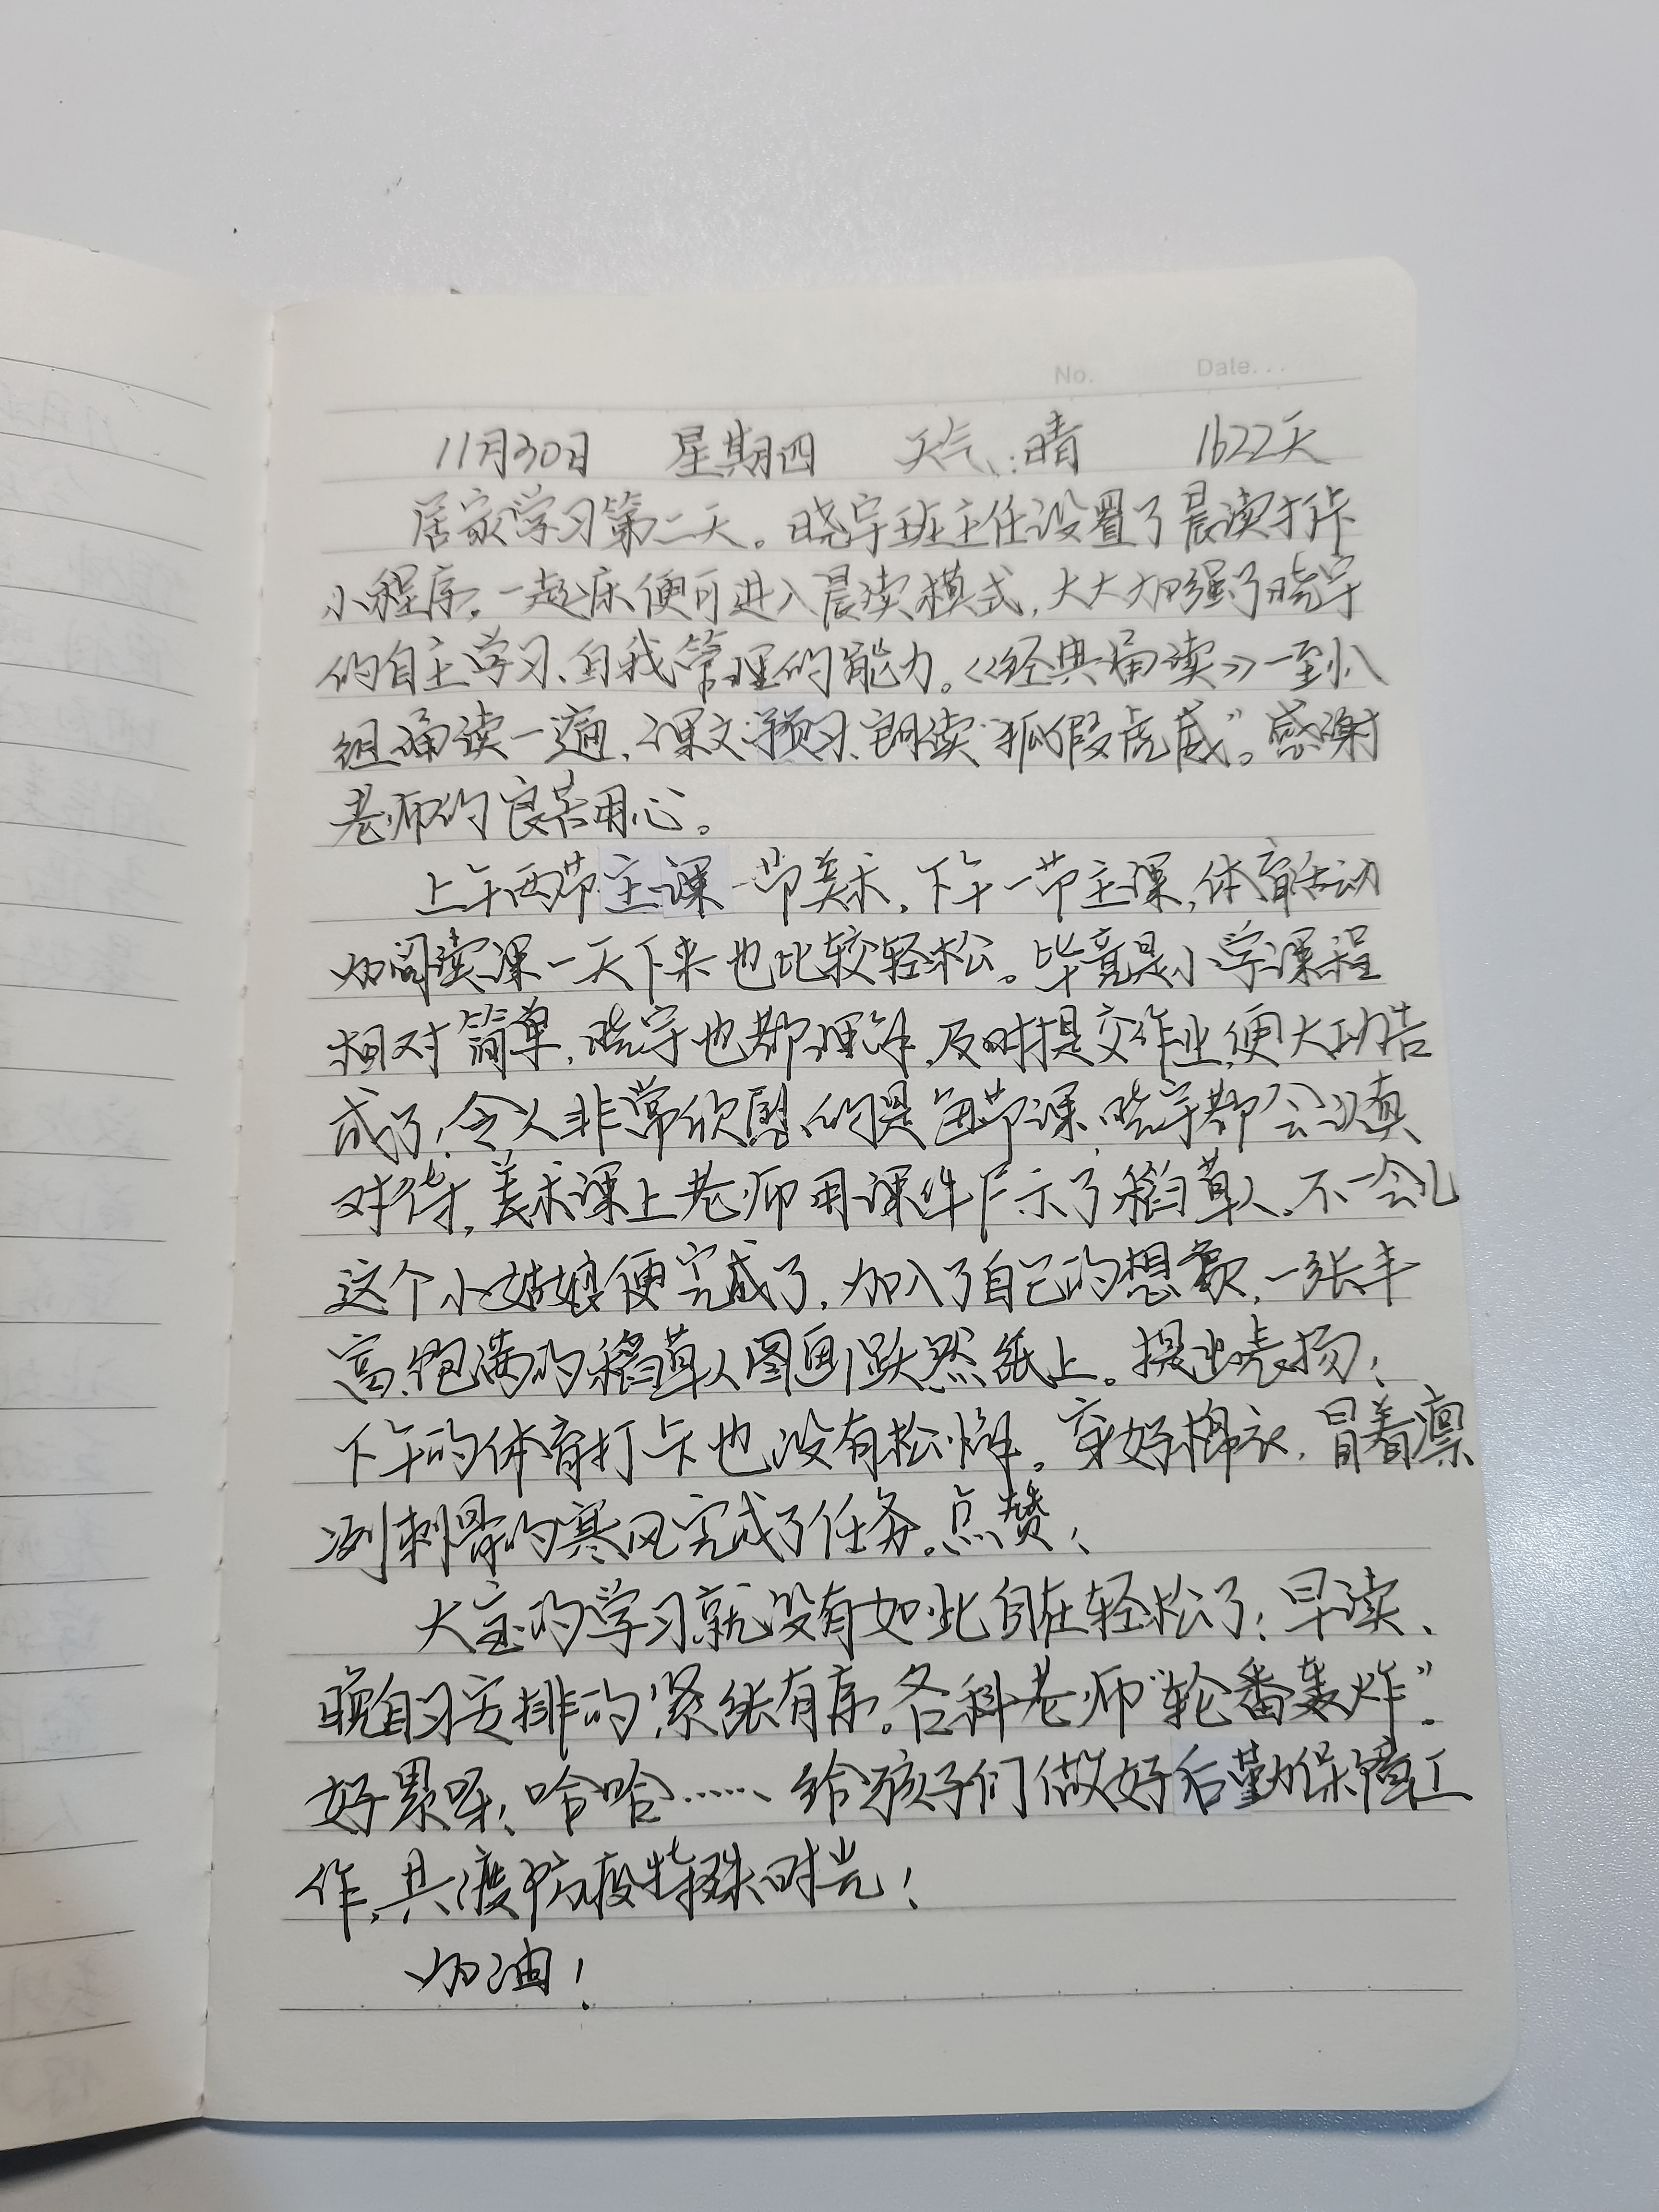 No. Date...
11月30日 星期四 天气:晴 1622天
居家学习第二天。晓宇班主任设置了晨读打卡
小程序。一起床便可进入晨读模式,大大加强了晓宇
的自主学习、自我管理的能力。《经典诵读》一至八
组诵读一遍,课文预习、朗读“狐假虎威”。感谢
老师的良苦用心。
上午两节主课一节美术,下午一节主课,体育活动
加阅读课一天下来也比较轻松。毕竟是小学课程
相对简单,晓宇也都理解,及时提交作业,便大功告
成了!令人非常欣慰的是每节课,晓宇都会认真
对待,美术课上老师用课件展示了稻草人,不一会儿
这个小姑娘便完成了,加入了自己的想象,一张丰
富、饱满的稻草人图画跃然纸上。提出表扬!
下午的体育打卡也没有松懈。穿好棉衣,冒着凛
冽刺骨的寒风完成了任务。点赞!
大宝的学习就没有如此自在轻松了!早读、
晚自习安排的紧张有序。各科老师“轮番轰炸”。
好累呀!哈哈……给孩子们做好后勤保障工
作,共渡防疫特殊时光!
加油!